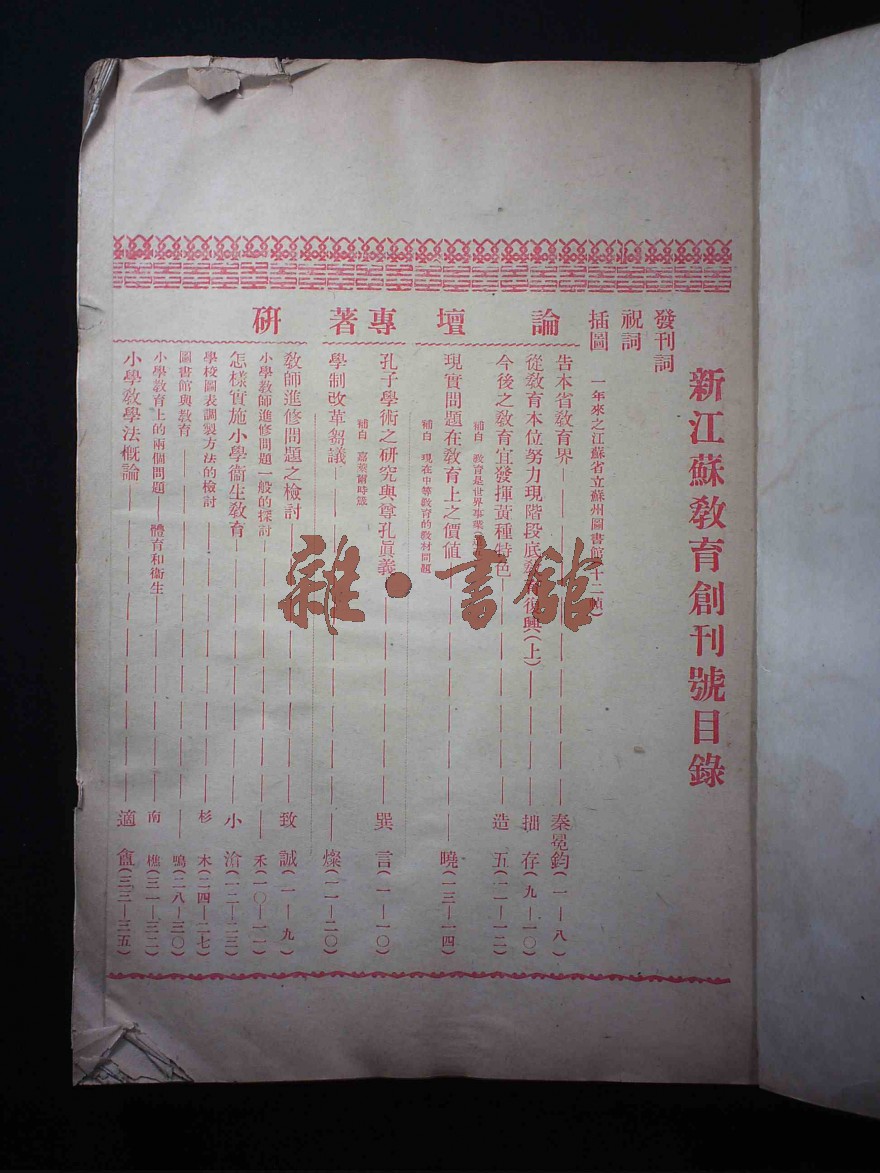 新江蘇敎育創刊號目錄
發刊詞
祝詞
插圖 一年來之江蘇省立蘇州圖書館(十二幀)
論壇
告本省敎育界 秦冕鈞(一—八)
從敎育本位努力現階段底 復興(上) 拙存(九—一〇)
補白 敎育是世界事業
今後之敎育宜發揮黃種特色 造五(一一—一二)
現實問題在敎育上之價値 曉(一三—一四)
補白 現在中等敎育的敎材問題
專著
孔子學術之硏究與尊孔眞義 巽言(一—一〇)
補白 嘉萊爾時箴
學制改革芻議 燦(一一—二〇)
硏
敎師進修問題之檢討 致誠(一—九)
小學敎師進修問題一般的探討 禾(一〇—一一)
怎樣實施小學衞生敎育 小滄(一二—二三)
學校圖表調製方法的檢討 杉木(二四—二七)
圖書館與敎育 鳴(二八—三〇)
小學敎育上的兩個問題——體育和衞生 南樵(三一—三二)
小學敎學法槪論 適盦(三三—三五)
雜·書館